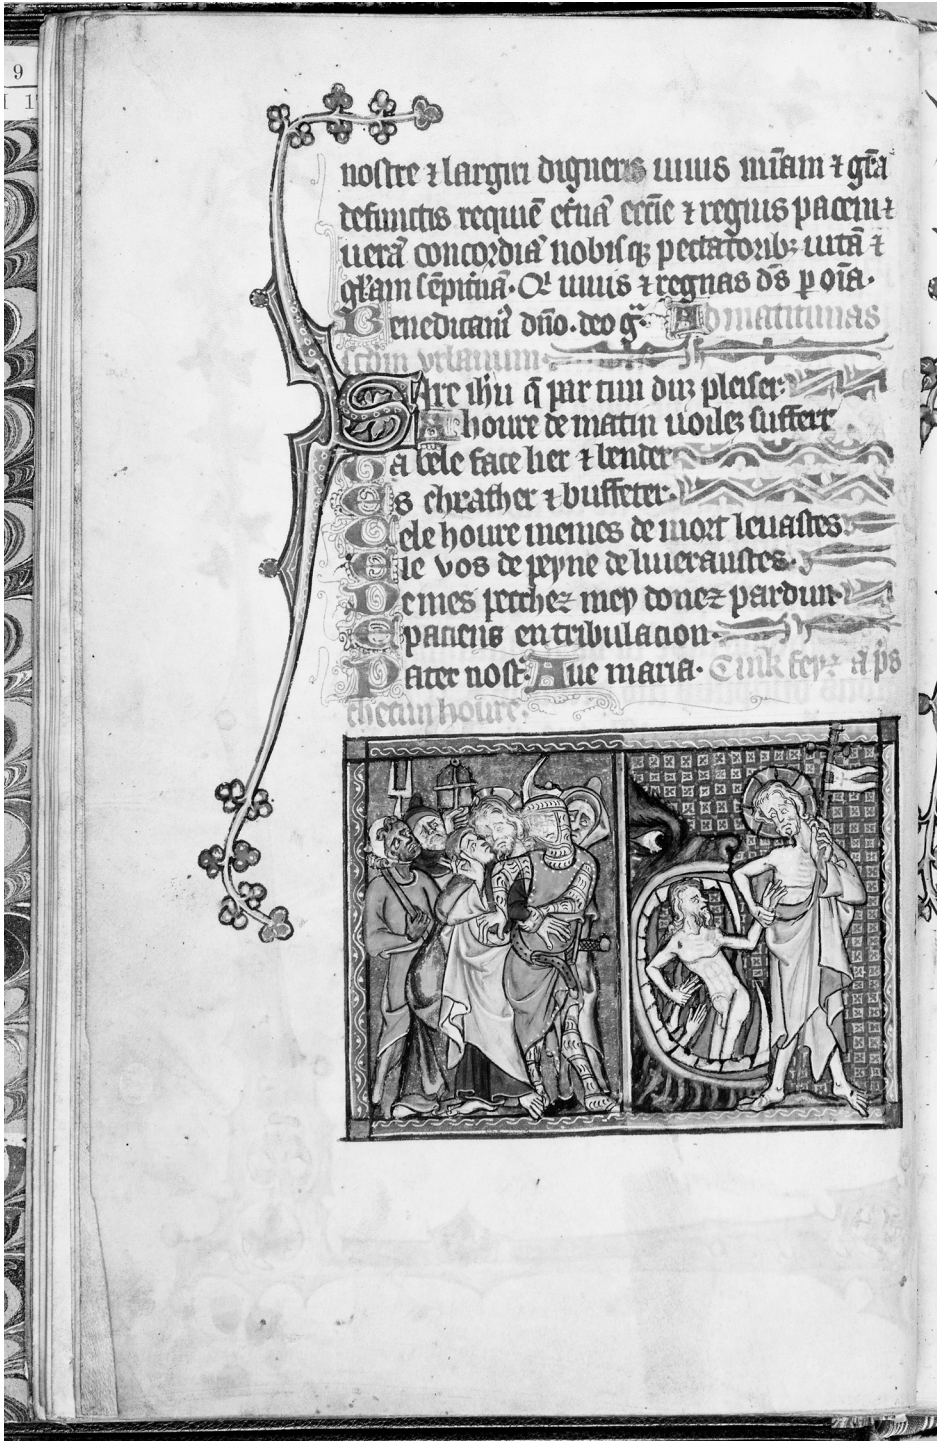 9
1 1
nostre ⁊ largiri digneris uiuis mīam ⁊ grā
defunctis requiē et̄nā eccīe ⁊ regius pacem ⁊
uerā concordiā nobisq; peccatorib; uitā ⁊
glam sēpit̄nā. Qͥ uiuis ⁊ regnas ds̄ p oīa.
Benedicamꝰ dn̄o. deo gͣ. Ad matutinas
scdm urbanum.
Sire ihū q̄ par tun duz pleiser.
A houre de matin uoilez suffert
Ta bele face lier ⁊ bender
Es chracher ⁊ buffeter.
Cele houre memes de mort leuastes
E le vos de peyne deliueraustes.
De mes pecchez mey donez pardun.
E paciens en tribulacion.
Pater nost̄. Aue maria. Cink feyz a p̄s
checun houre.